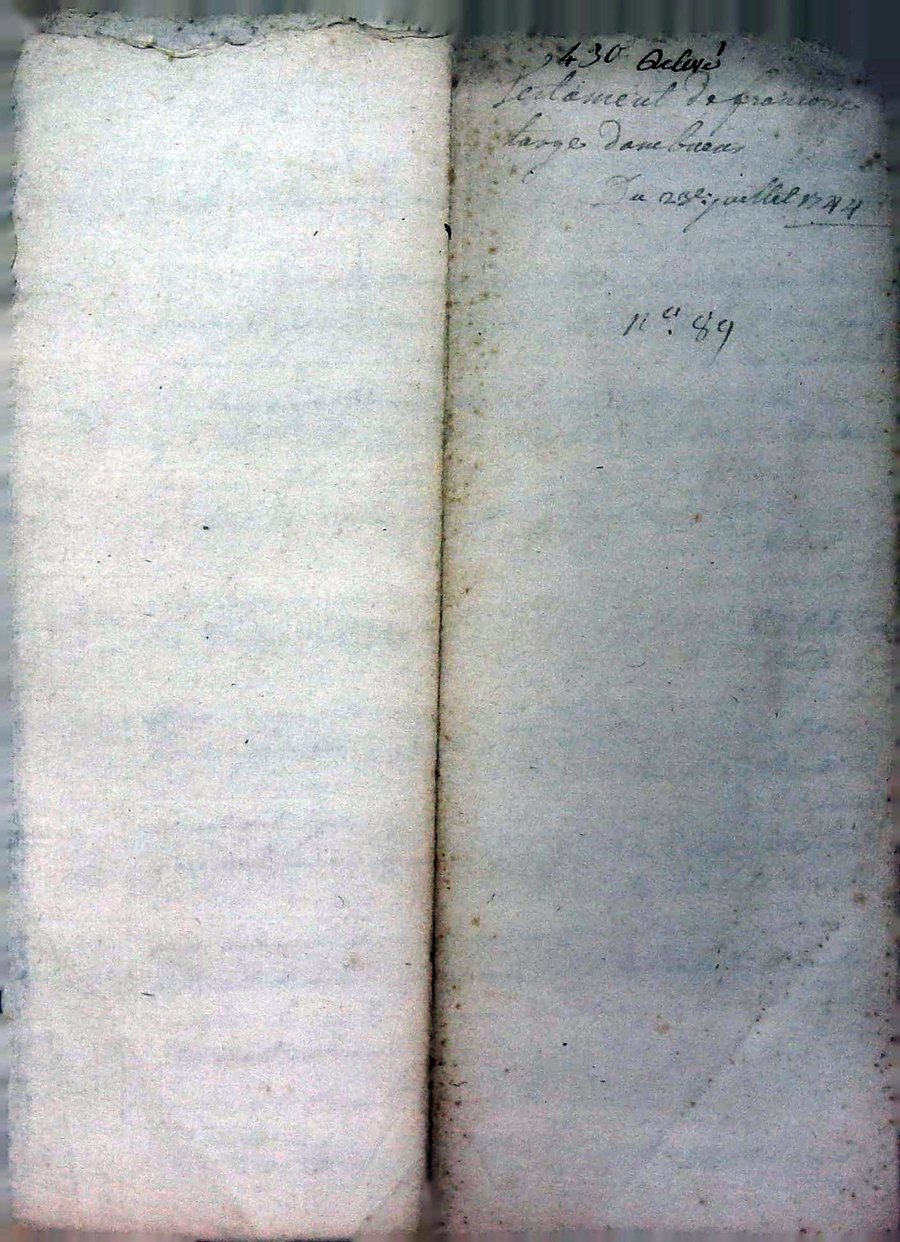 430 Relevé
Testament de francois
farge dambuen
Du 23e: juillet 1744
n.o 89